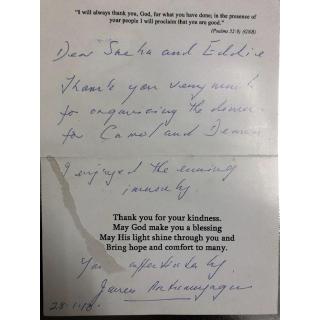 "I will always thank you, God, for what you have done; in the presence of
your people I will proclaim that you are good."
(Psalms 52:9) (GNB)
Dear and Eddie
Thank you very much
for organising the dinner
for and
I enjoyed the evening
immensely.
Thank you for your kindness.
May God make you a blessing
May His light shine through you and
Bring hope and comfort to many.
Yours affectionately,